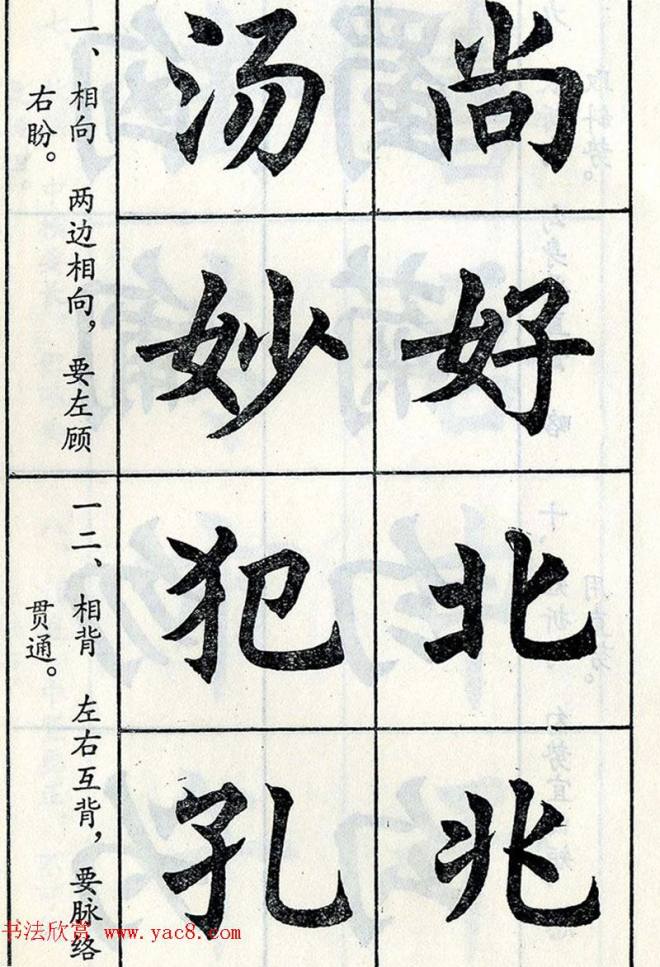 尚好北兆
汤妙犯孔
一、相向 两边相向，要左顾
右盼。
一二、相背 左右互背，要脉络
贯通。
书法欣赏 www.yac8.com